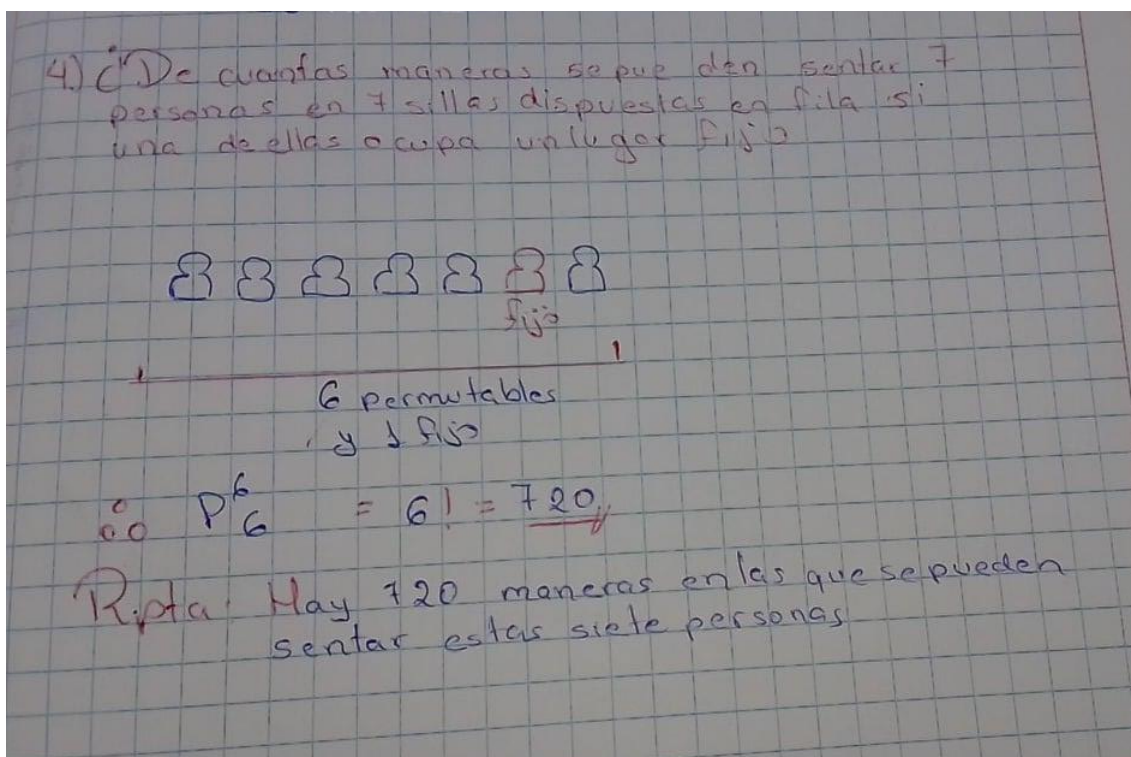 4.) ¿De cuantas maneras se pueden sentar 7
personas en 7 sillas dispuestas en fila si
una de ellas ocupa un lugar fijo
fijo
6 permutables
y 1 fijo
∴ P⁶₆ = 6! = 720
Rpta: Hay 720 maneras en las que se pueden
sentar estas siete personas